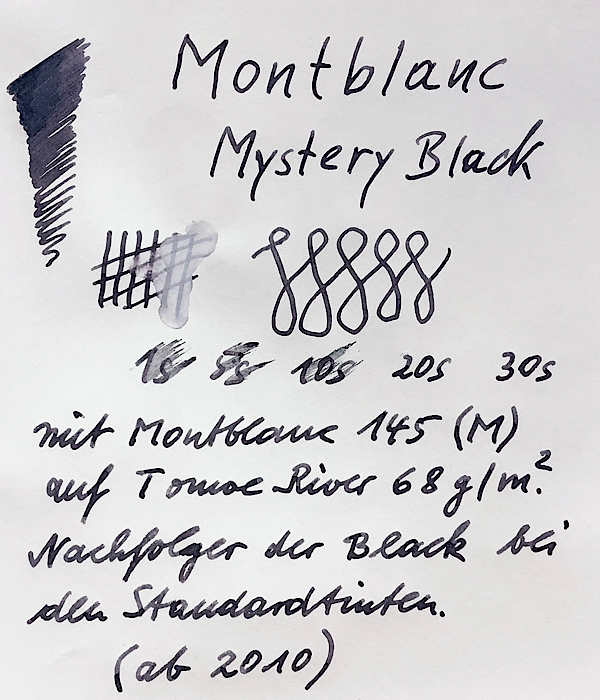 Montblanc
Mystery Black
1s 5s 10s 20s 30s
mit Montblanc 145 (M)
auf Tomoe River 68 g/m².
Nachfolger der Black bei
den Standardtinten.
(ab 2010)